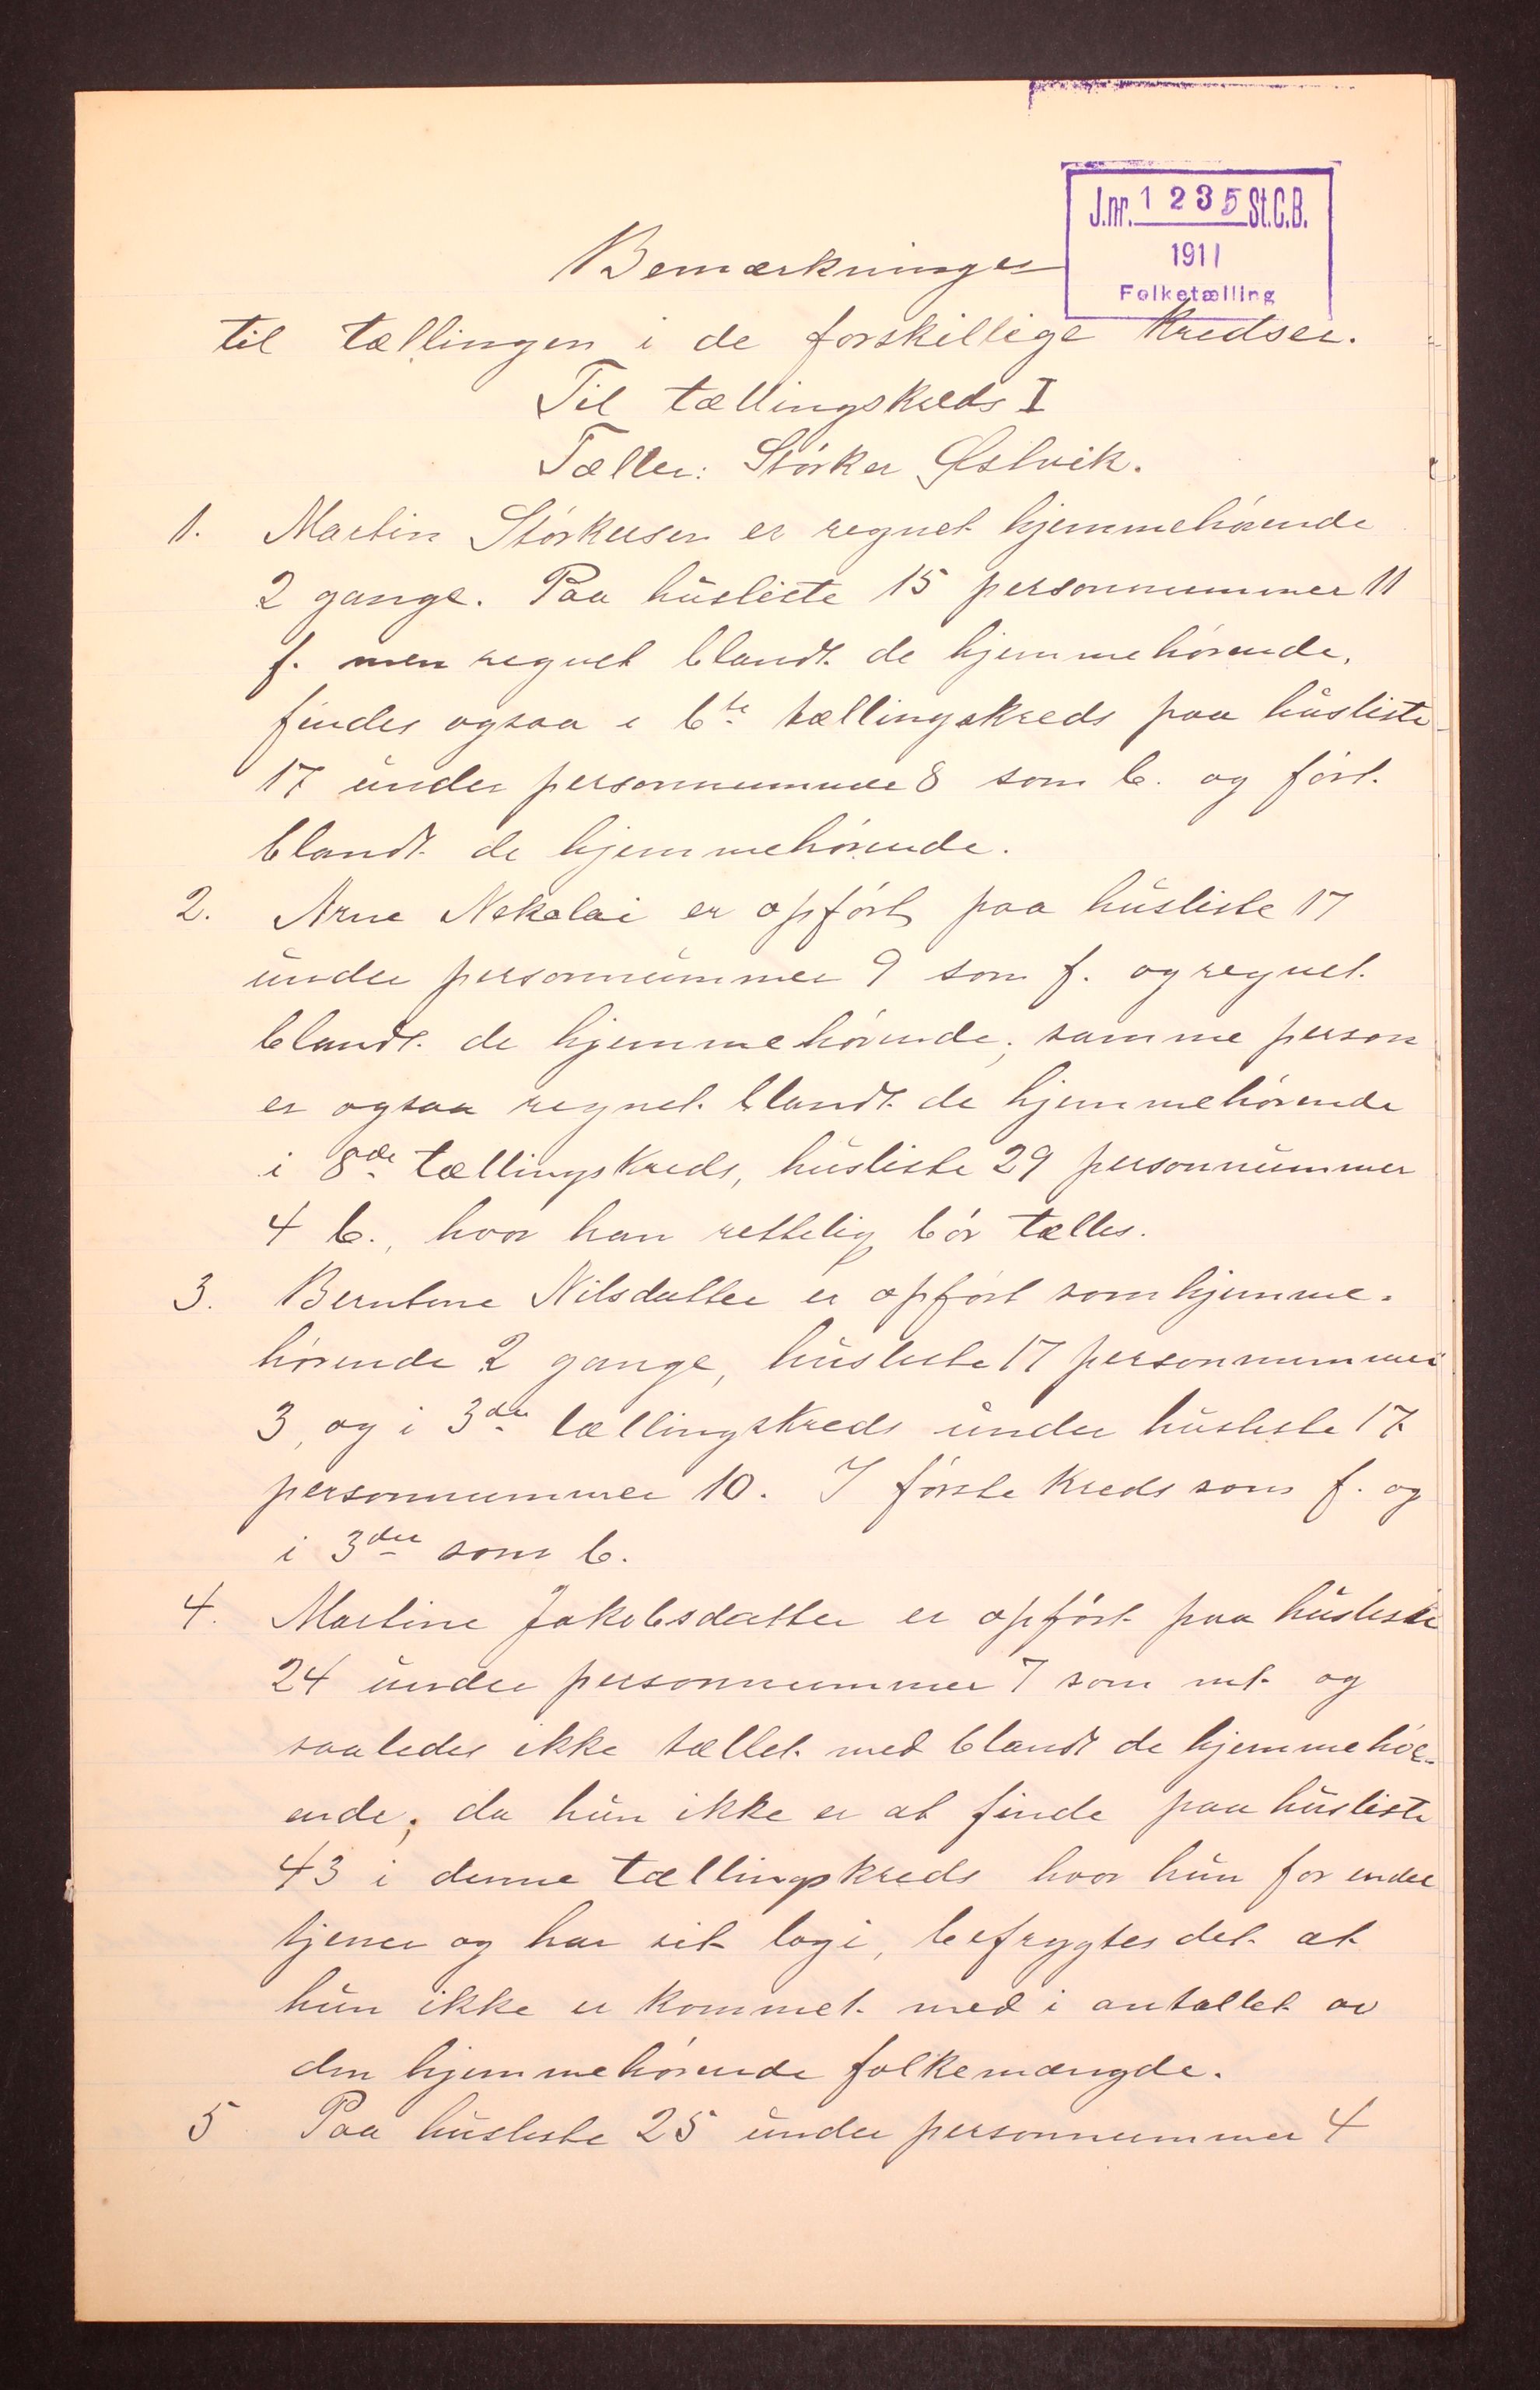 J.nr. 1235 St.C.B.
1911
Folketælling
Bemærkninger
til tællingen i de forskillige kredser.
Til tællingskreds I
Tæller: Størker Østvik.
1. Martin Størkersen er regnet hjemmehørende
2 gange. Paa husliste 15 personnummer 11
f. men regnet blandt de hjemmehørende,
findes ogsaa i 6te tællingskreds paa husliste
17 under personnummer 8 som b. og ført
blandt de hjemmehørende.
2. Arne Nekolai er opført paa husliste 17
under personnummer 9 som f. og regnet
blandt de hjemmehørende; samme person
er ogsaa regnet blandt de hjemmehørende
i 8de tællingskreds, husliste 29 personnummer
4 b., hvor han rettelig bør tælles.
3. Berntine Nilsdatter er opført som hjemme-
hørende 2 gange, husliste 17 personnummer
3, og i 3die tællingskreds under husliste 17
personnummer 10. I første kreds som f. og
i 3die som b.
4. Martine Jakobsdatter er opført paa husliste
24 under personnummer 7 som mt. og
saaledes ikke tællet med blandt de hjemmehør-
ende; da hun ikke er at finde paa husliste
43 i denne tællingskreds hvor hun for ender
tjener og har sit logi, befrygtes det at
hun ikke er kommet med i antallet av
den hjemmehørende folkemængde.
5 Paa husliste 25 under personnummer 4